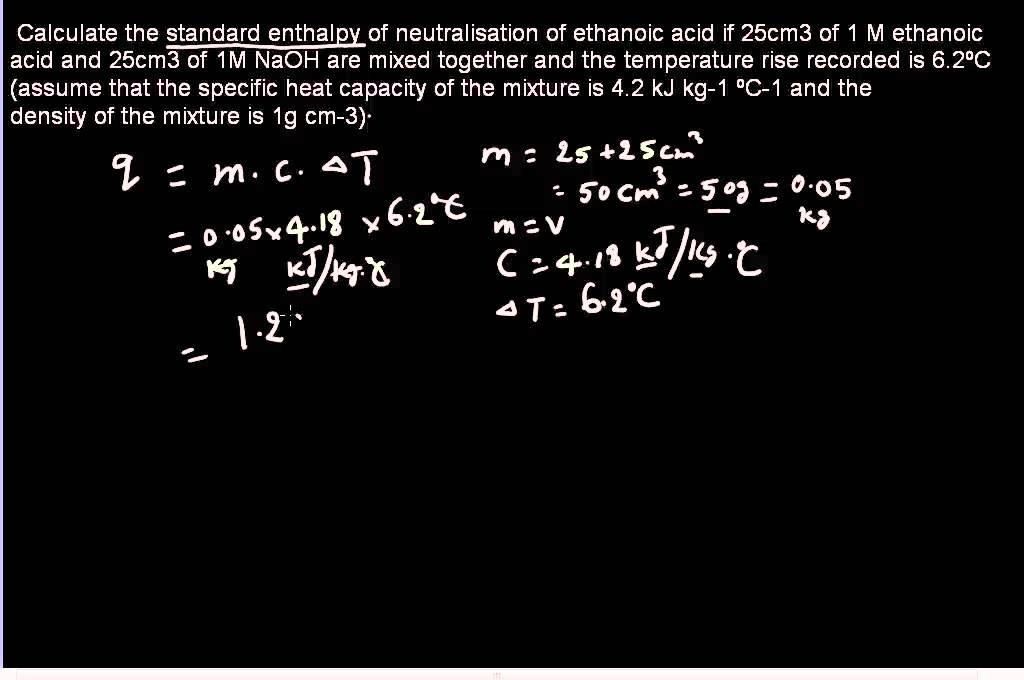 Calculate the standard enthalpy of neutralisation of ethanoic acid if 25cm3 of 1 M ethanoic
acid and 25cm3 of 1M NaOH are mixed together and the temperature rise recorded is 6.2ºC
(assume that the specific heat capacity of the mixture is 4.2 kJ kg-1 ºC-1 and the
density of the mixture is 1g cm-3).
q = m. c. ΔT
= 0.05 x 4.18 x 6.2°C
kg kJ/kg.°C
= 1.2
m = 25 + 25 cm³
= 50 cm³ = 50g = 0.05
kg
m = V
C = 4.18 kJ/kg.°C
ΔT = 6.2°C